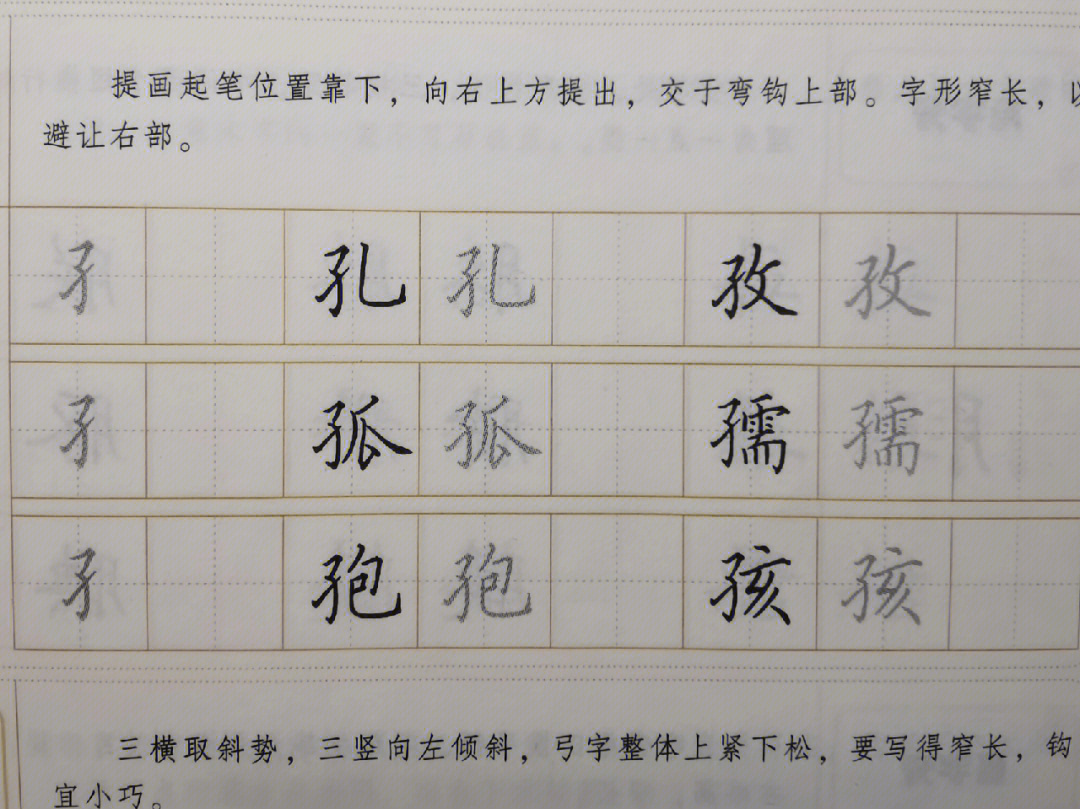 提画起笔位置靠下，向右上方提出，交于弯钩上部。字形窄长，以
避让右部。
孑 孔 孔 孜 孜
孑 孤 孤 孺 孺
孑 孢 孢 孩 孩
三横取斜势，三竖向左倾斜，弓字整体上紧下松，要写得窄长，钩
宜小巧。